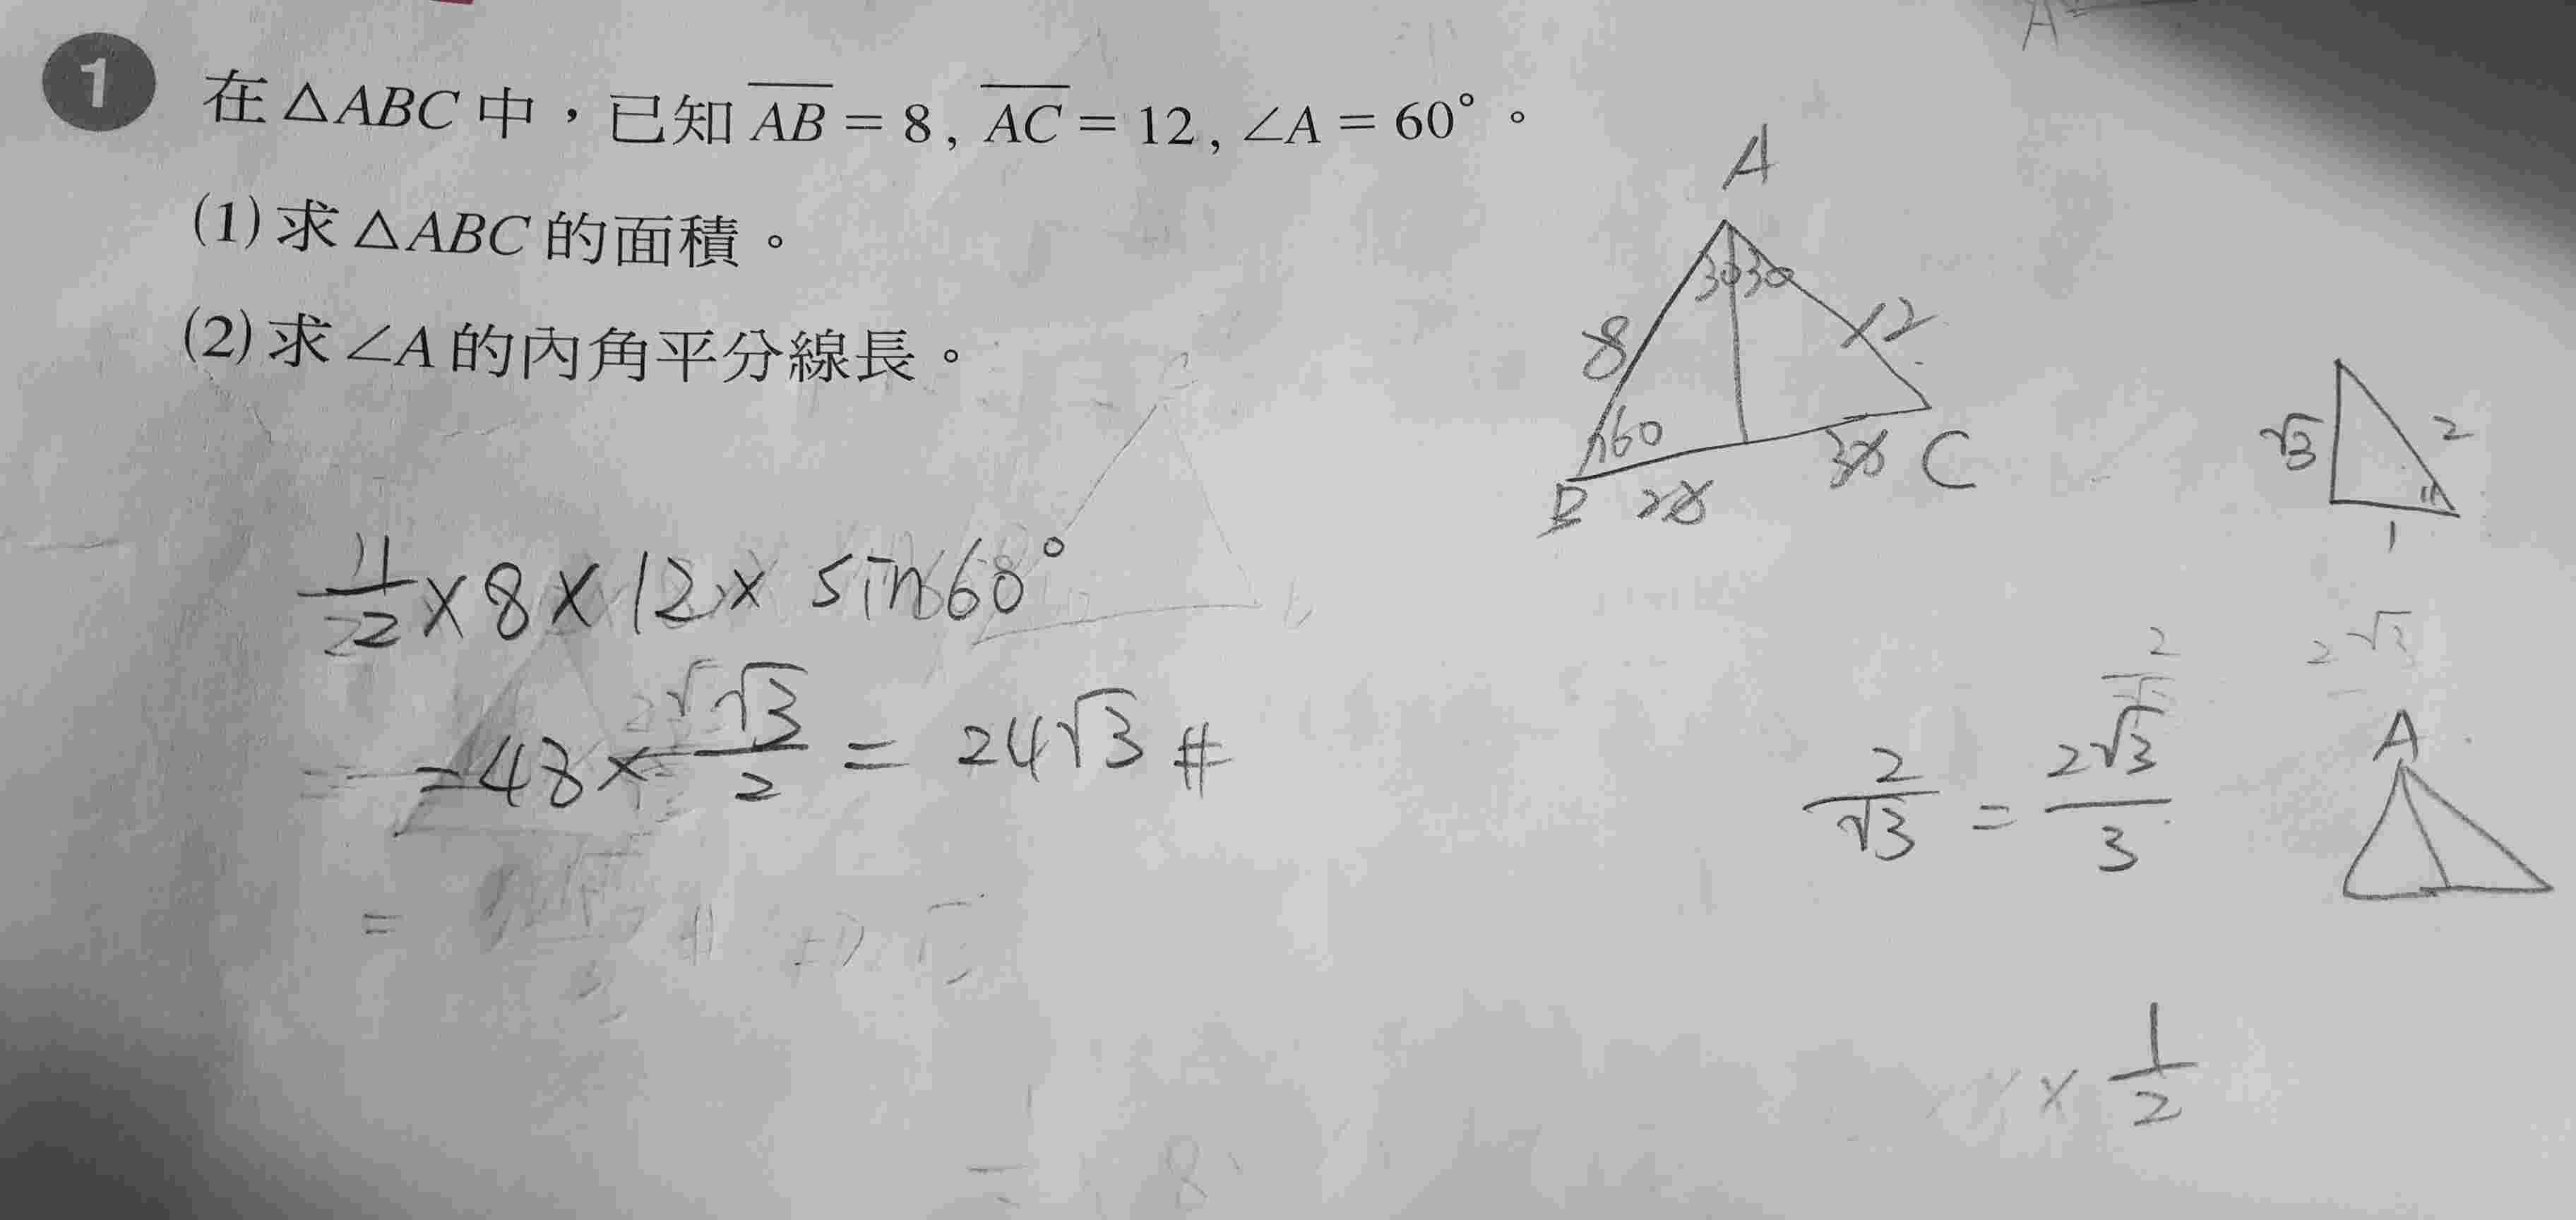 1 在△ABC中,已知 AB = 8, AC = 12, ∠A = 60°。
(1) 求△ABC的面積。
(2) 求∠A的內角平分線長。
A
A
30 30
8
12
60
B 2x 3x C
√3 2
1
1/2 × 8 × 12 × sin60°
= 48 × √3/2 = 24√3 #
2√3
2/√3 = 2√3/3
A
× 1/2
= 8